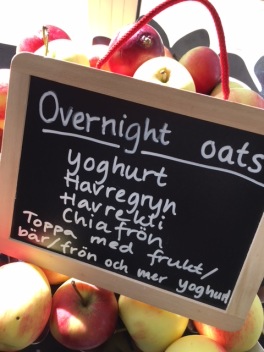 Overnight oats
Yoghurt
Havregryn
Havrekli
Chiafrön
Toppa med frukt/
bär/frön och mer yoghurt